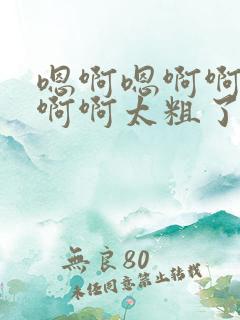 嗯啊嗯啊啊
啊啊太粗了
無良80
未经同意禁止转载